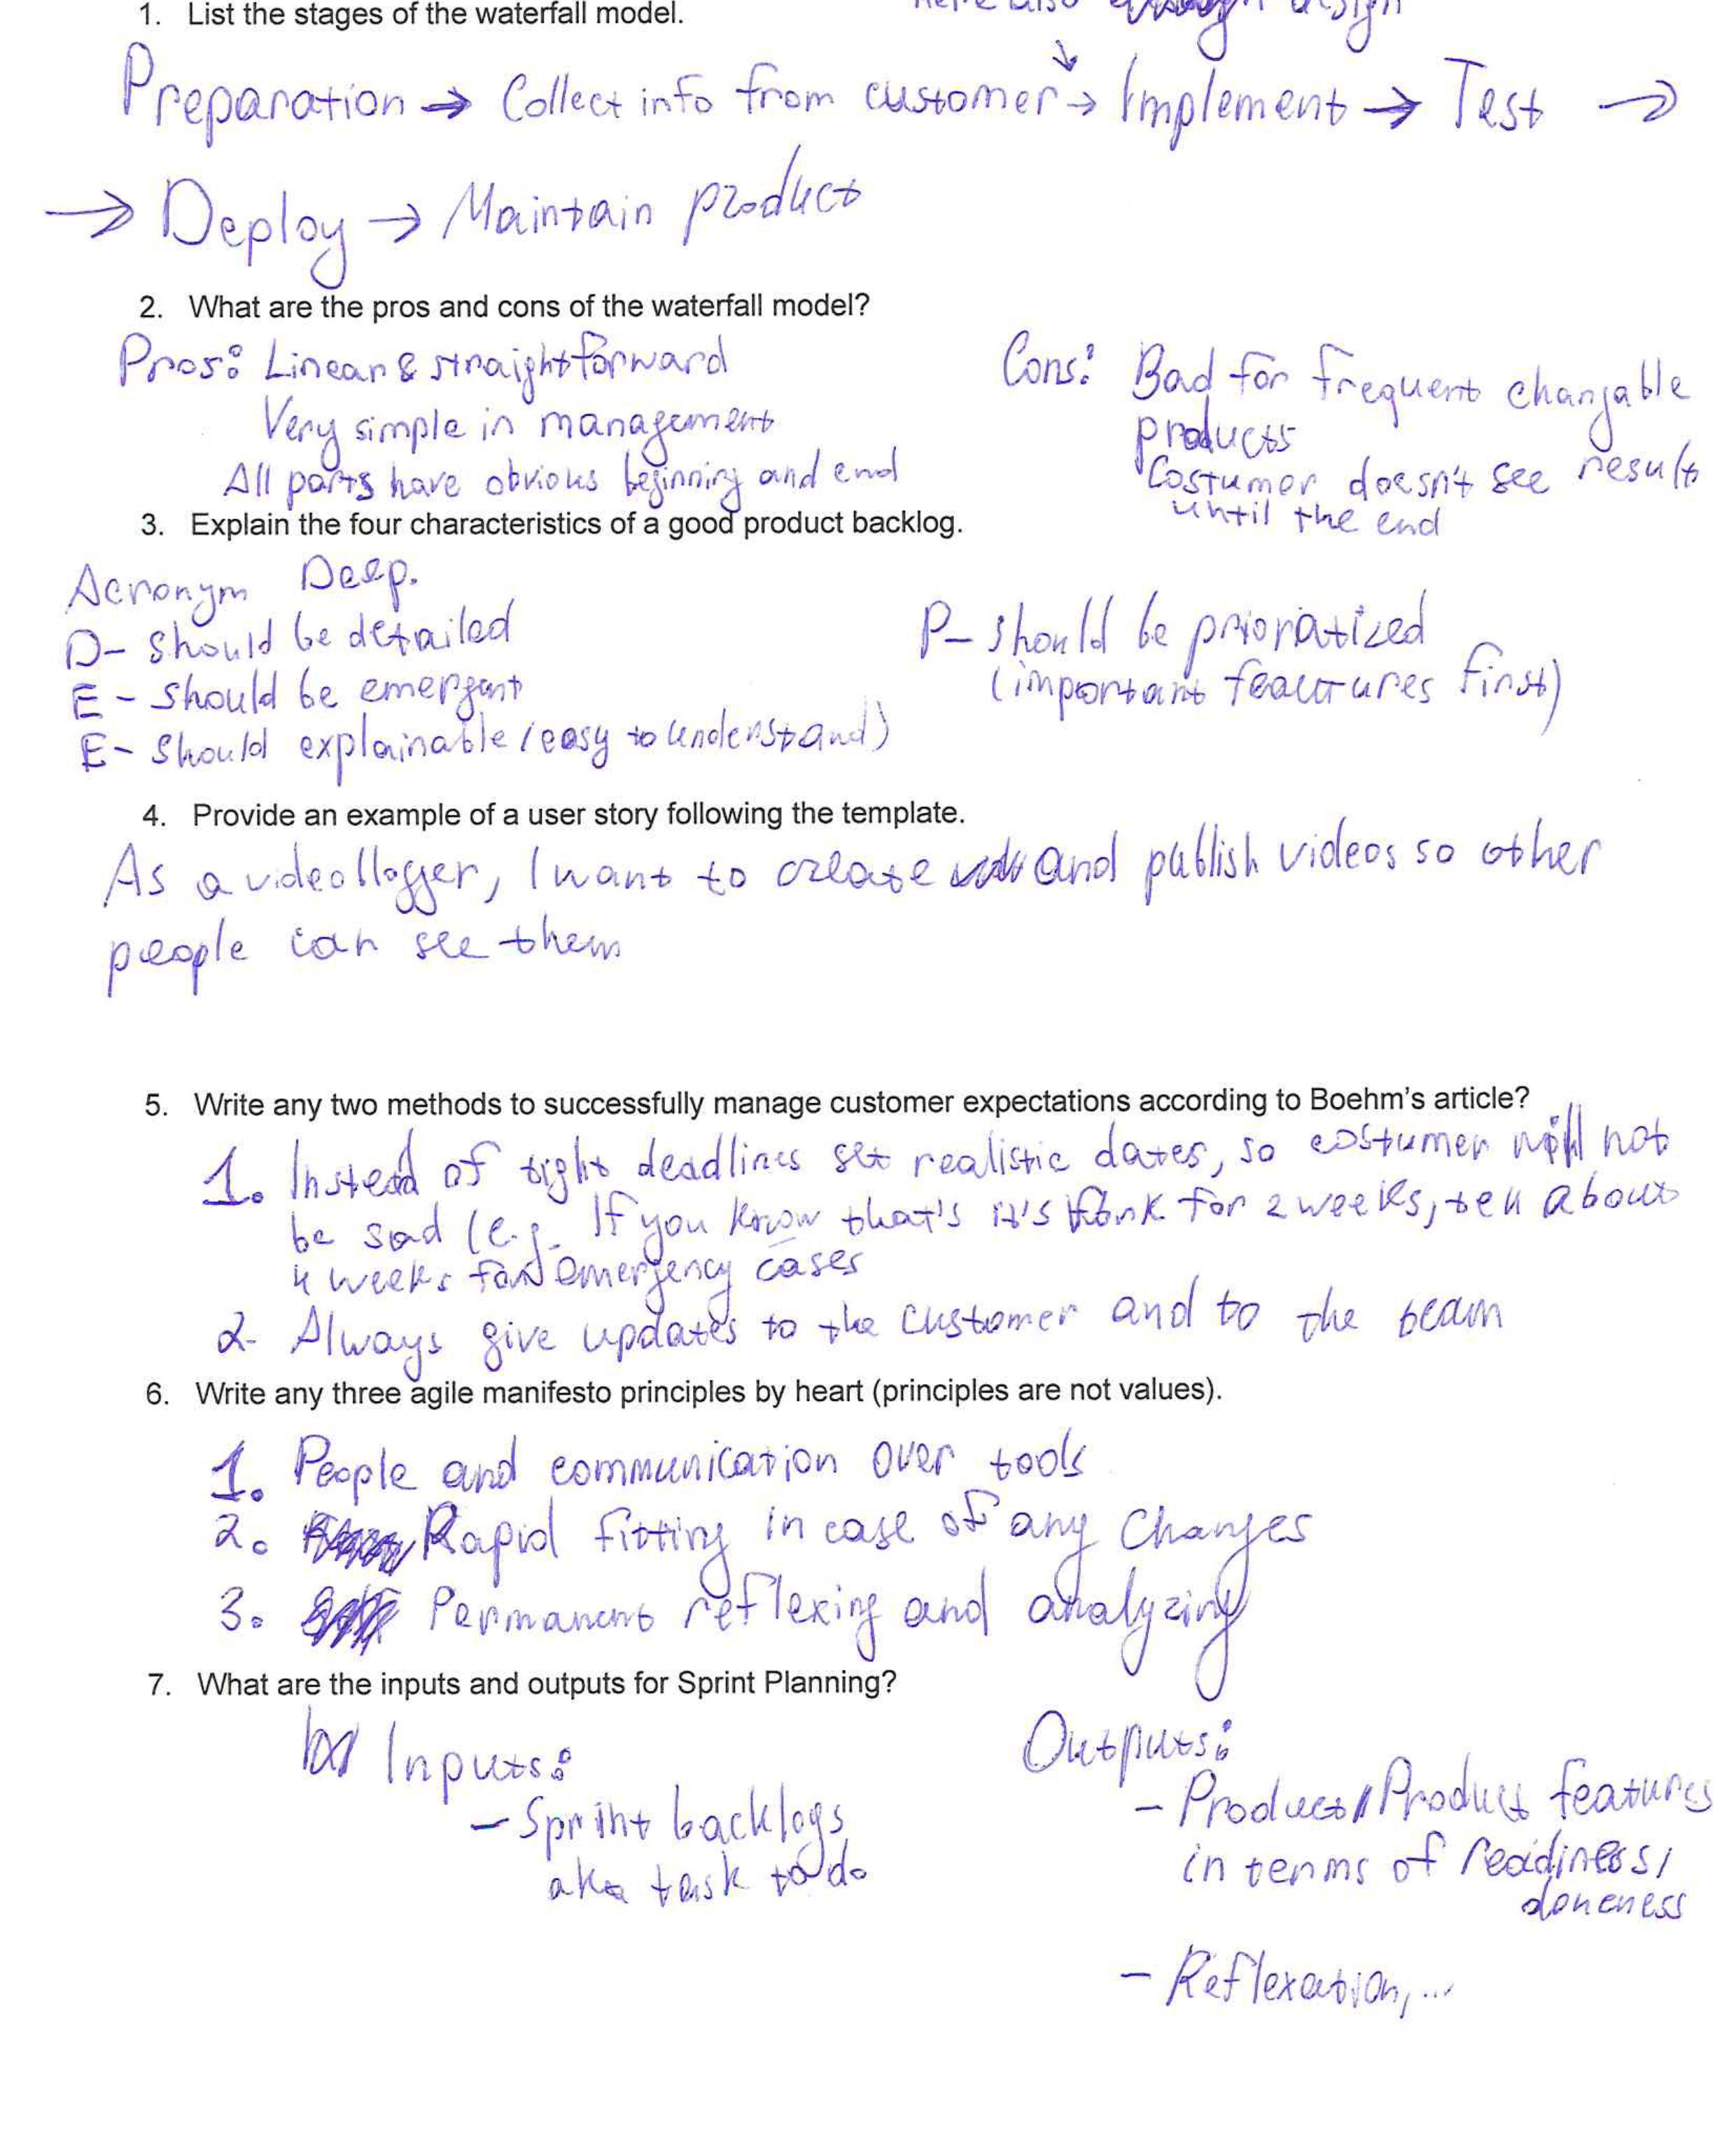 1. List the stages of the waterfall model.
here also design
Preparation → Collect info from customer → Implement → Test →
→ Deploy → Maintain product
2. What are the pros and cons of the waterfall model?
Pros: Linear & straightforward
Very simple in management
All parts have obvious beginning and end
Cons: Bad for frequent changable
products
Costumer doesn't see result
until the end
3. Explain the four characteristics of a good product backlog.
Acronym Deep.
D- should be detailed
E - should be emergent
E- should explainable (easy to understand)
P- should be prioratized
(important feautures first)
4. Provide an example of a user story following the template.
As a videoblogger, I want to create and publish videos so other
people can see them
5. Write any two methods to successfully manage customer expectations according to Boehm's article?
1. Instead of tight deadlines set realistic dates, so costumer will not
be sad (e.g. If you know that's it's work for 2 weeks, tell about
4 weeks for emergency cases
2- Always give updates to the customer and to the team
6. Write any three agile manifesto principles by heart (principles are not values).
1. People and communication over tools
2. Rapid fitting in case of any changes
3. Permanent reflexing and analyzing
7. What are the inputs and outputs for Sprint Planning?
Inputs:
- Sprint backlogs
aka task to do
Outputs:
- Product/Product features
in terms of readiness/
doneness
- Reflexation, ...